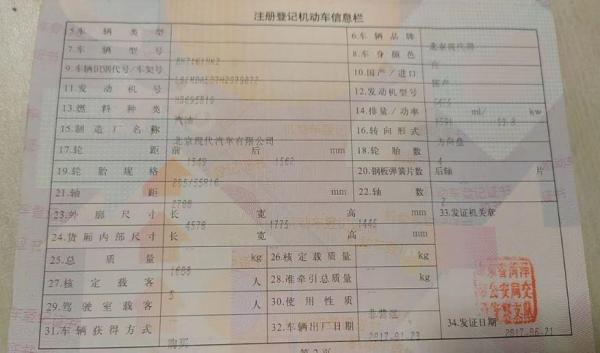 注册登记机动车信息栏
5.车辆类型 6.车辆品牌 北京现代牌
7.车辆型号 8.车身颜色
9.车辆识别代号/车架号 10.国产/进口 国产
11.发动机号 12.发动机型号
13.燃料种类 汽油 14.排量/功率 ml/ kw
15.制造厂名称 北京现代汽车有限公司 16.转向形式 方向盘
17.轮距 前 1549 后 1562 mm 18.轮胎数 4
19.轮胎规格 205/55R16 20.钢板弹簧片数 后轴 片
21.轴距 2700 mm 22.轴数 2
23.外廓尺寸 长 4570 宽 1775 高 1445 mm 33.发证机关章
24.货厢内部尺寸 长 宽 高 mm
25.总质量 kg 26.核定载质量 kg
27.核定载客 5 人 28.准牵引总质量 kg
29.驾驶室载客 人 30.使用性质
31.车辆获得方式 购买 32.车辆出厂日期 2017-01-23 34.发证日期 2017-06-21
第2页